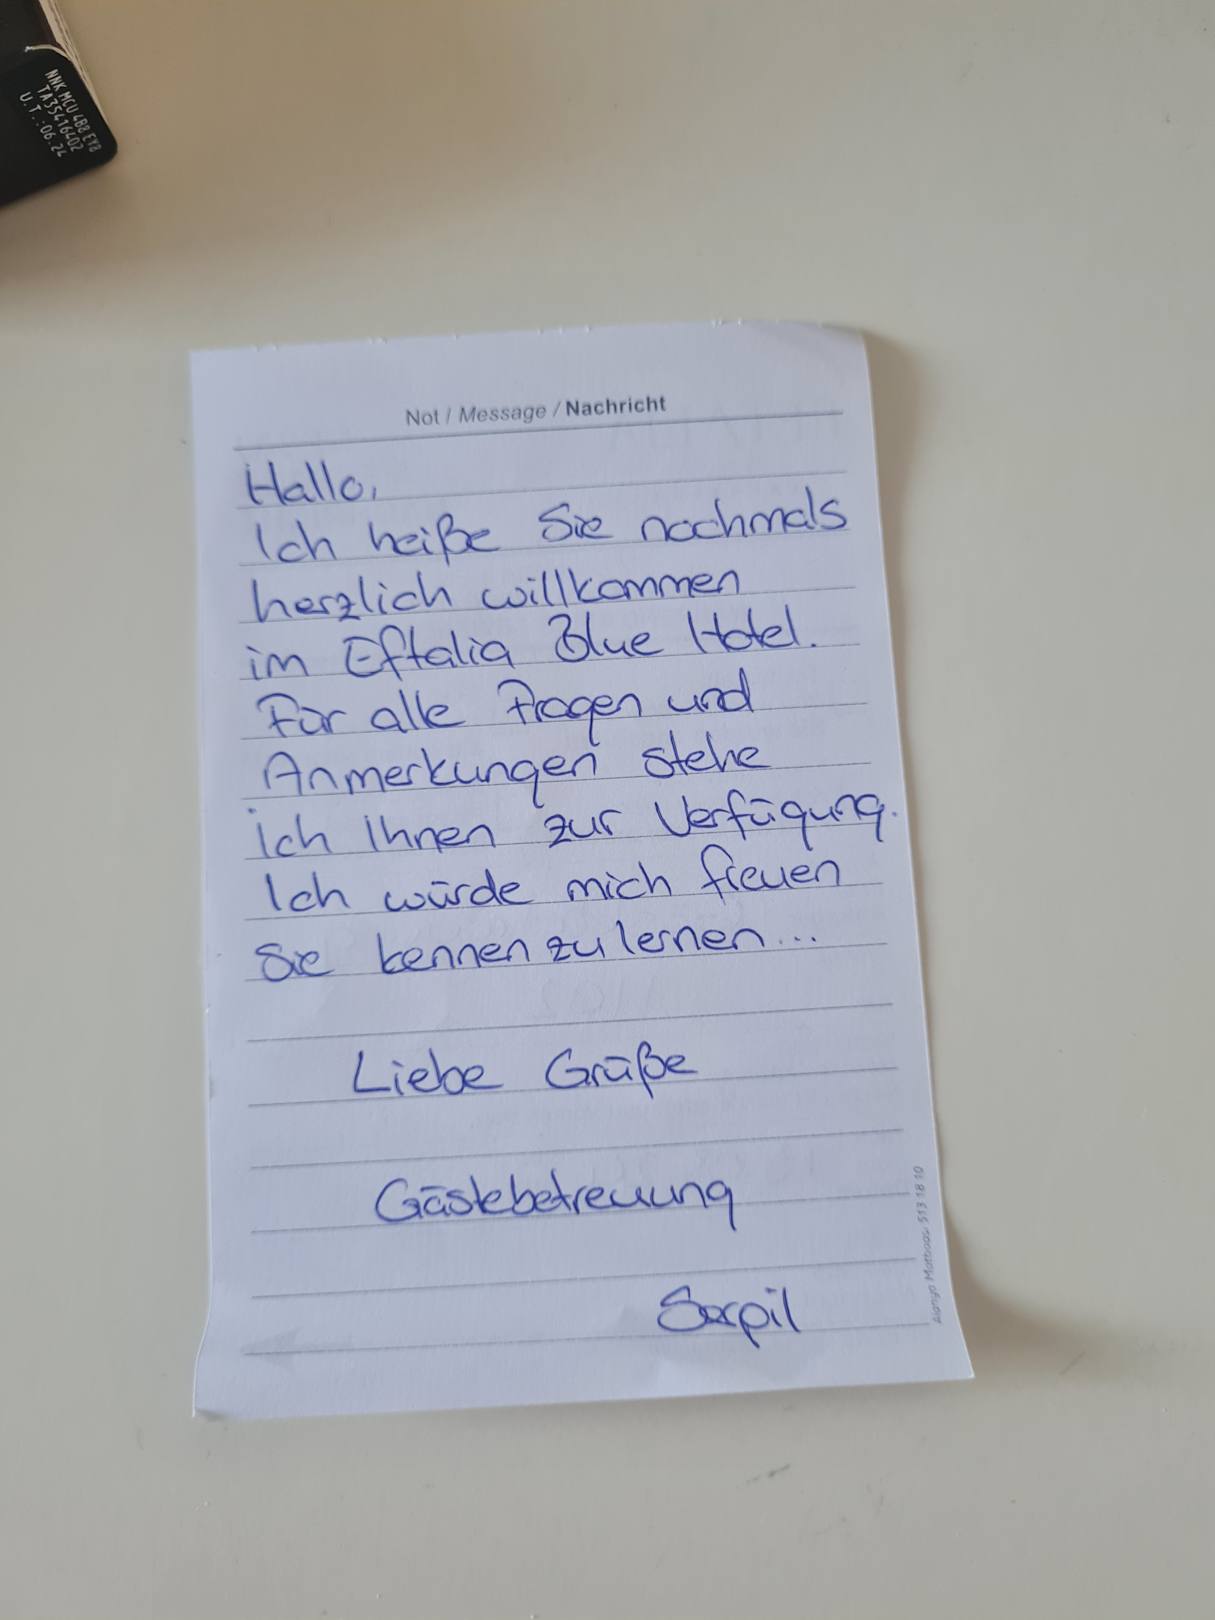 NNK MCU 4B8 EY8
TA35416402
U.T.:06.24
Not / Message / Nachricht
Hallo,
Ich heiße Sie nochmals
herzlich willkommen
im Eftalia Blue Hotel.
Für alle Fragen und
Anmerkungen stehe
ich Ihnen zur Verfügung.
Ich würde mich freuen
Sie kennenzulernen...
Liebe Grüße
Gästebetreuung
Serpil
Alanya Matbaası 513 18 10